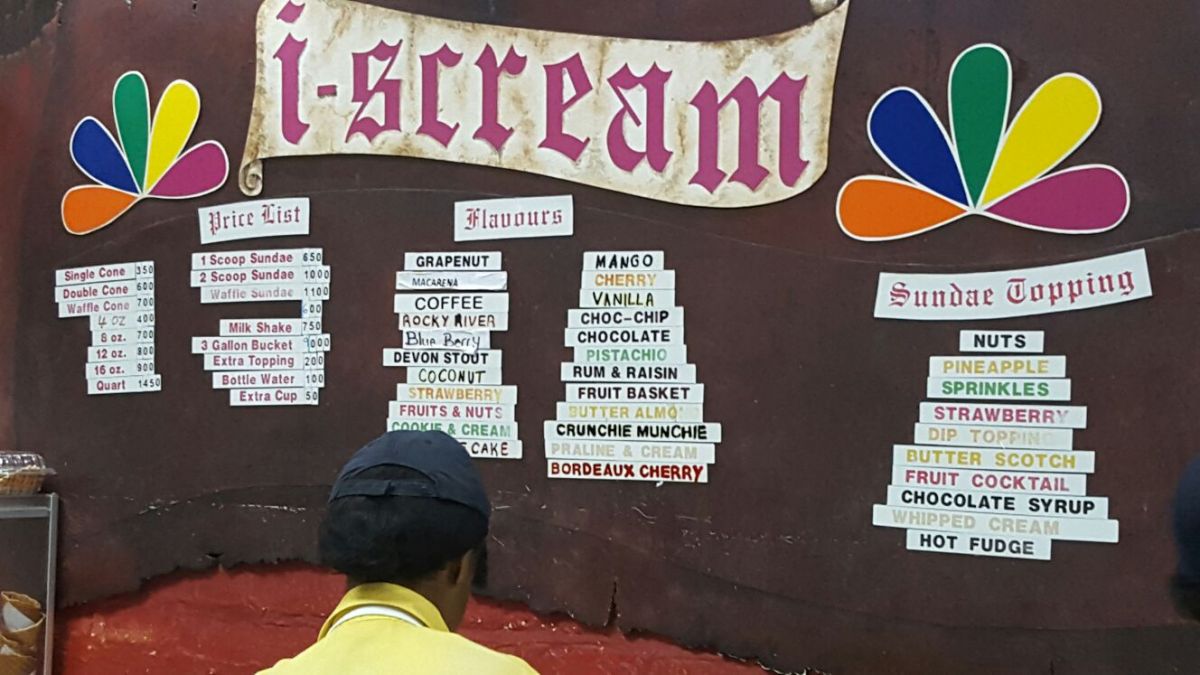 i-scream
Price List
Single Cone 350
Double Cone 600
Waffle Cone 700
4 oz 400
8 oz. 700
12 oz. 800
16 oz. 900
Quart 1450
1 Scoop Sundae 650
2 Scoop Sundae 1000
Waffle Sundae 1100
600
Milk Shake 750
3 Gallon Bucket 9000
Extra Topping 200
Bottle Water 100
Extra Cup 50
Flavours
GRAPENUT
MACARENA
COFFEE
ROCKY RIVER
Blue Berry
DEVON STOUT
COCONUT
STRAWBERRY
FRUITS & NUTS
COOKIE & CREAM
CAKE
MANGO
CHERRY
VANILLA
CHOC-CHIP
CHOCOLATE
PISTACHIO
RUM & RAISIN
FRUIT BASKET
BUTTER ALMO
CRUNCHIE MUNCHIE
PRALINE & CREAM
BORDEAUX CHERRY
Sundae Topping
NUTS
PINEAPPLE
SPRINKLES
STRAWBERRY
DIP TOPPING
BUTTER SCOTCH
FRUIT COCKTAIL
CHOCOLATE SYRUP
WHIPPED CREAM
HOT FUDGE